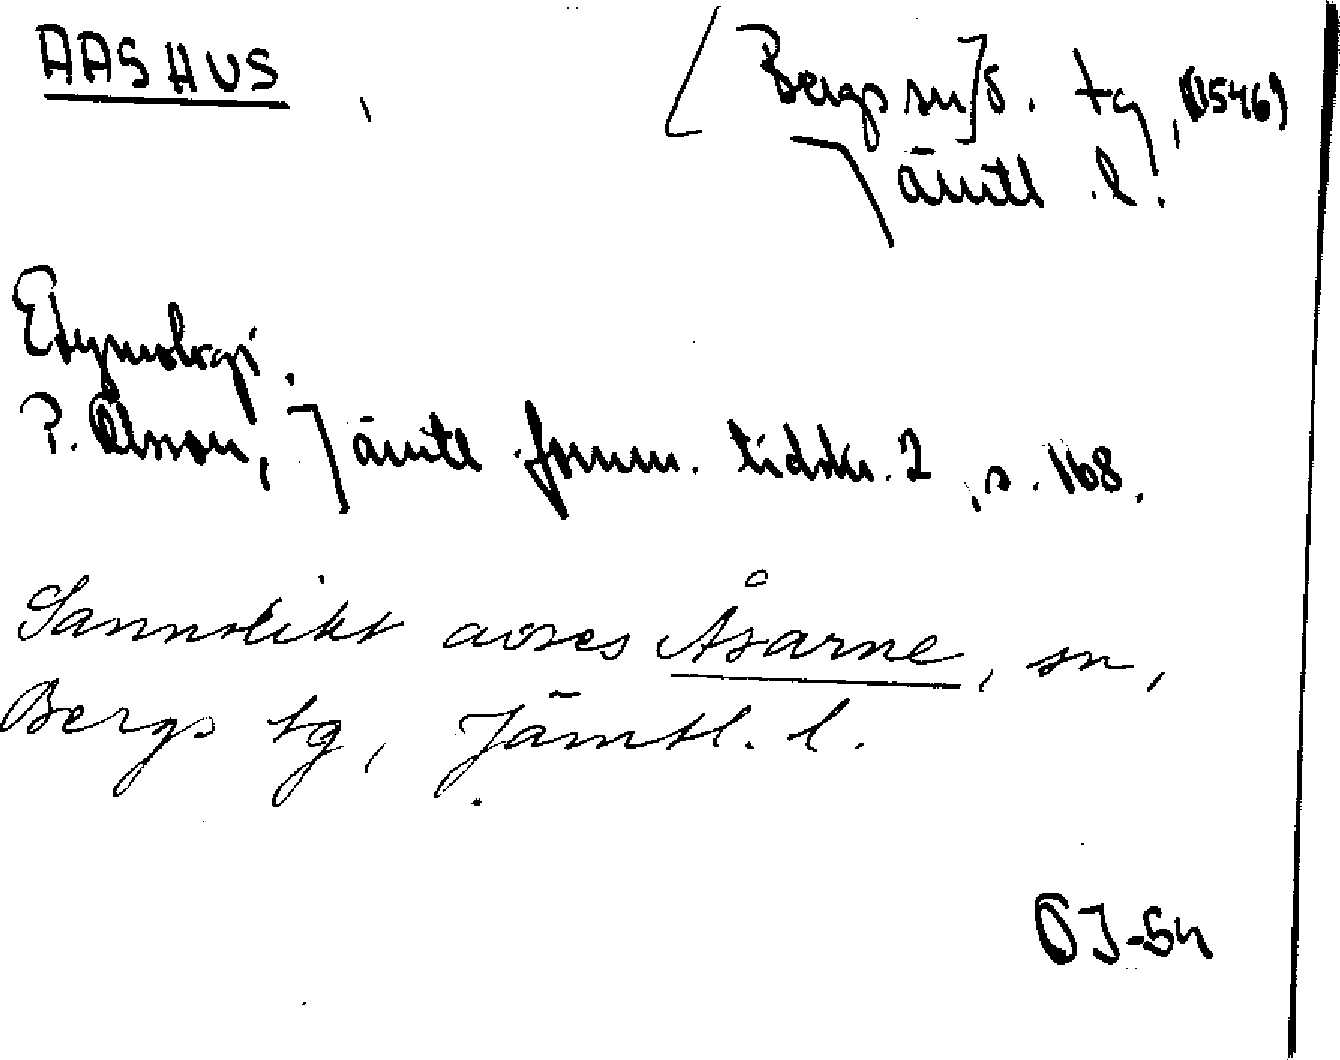 AASHUS, [Bergs sn] s. tg, (1546)
Jämtl. l.
Etymologi.
P. Olsson, Jämtl. fornm. tidskr. 2, s. 168.
Sannolikt avses Åsarne, sn,
Bergs tg, Jämtl. l.
ÖJ-54